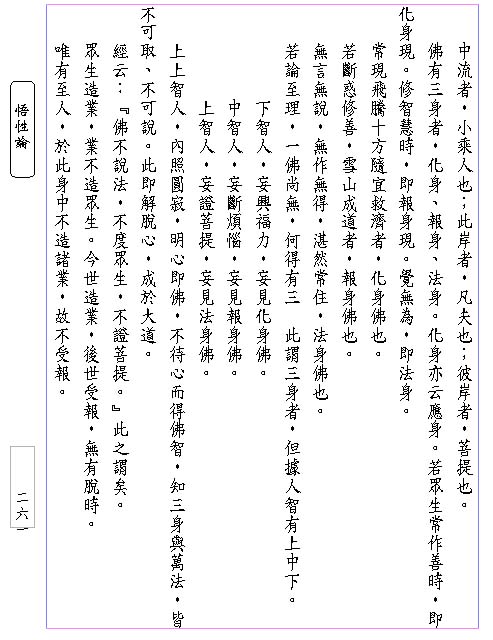 中流者，小乘人也；此岸者，凡夫也；彼岸者，菩提也。
佛有三身者，化身、報身、法身。化身亦云應身。若眾生常作善時，即
化身現。修智慧時，即報身現。覺無為，即法身。
常現飛騰十方隨宜救濟者，化身佛也。
若斷惑修善，雪山成道者，報身佛也。
無言無說，無作無得，湛然常住，法身佛也。
若論至理，一佛尚無，何得有三　此謂三身者，但據人智有上中下。
下智人，妄興福力，妄見化身佛。
中智人，妄斷煩惱，妄見報身佛。
上智人，妄證菩提，妄見法身佛。
上上智人，內照圓寂，明心即佛，不待心而得佛智，知三身與萬法，皆
不可取、不可說。此即解脫心，成於大道。
經云：『佛不說法，不度眾生，不證菩提。』此之謂矣。
眾生造業，業不造眾生。今世造業，後世受報，無有脫時。
唯有至人，於此身中不造諸業，故不受報。
悟性論
二六一